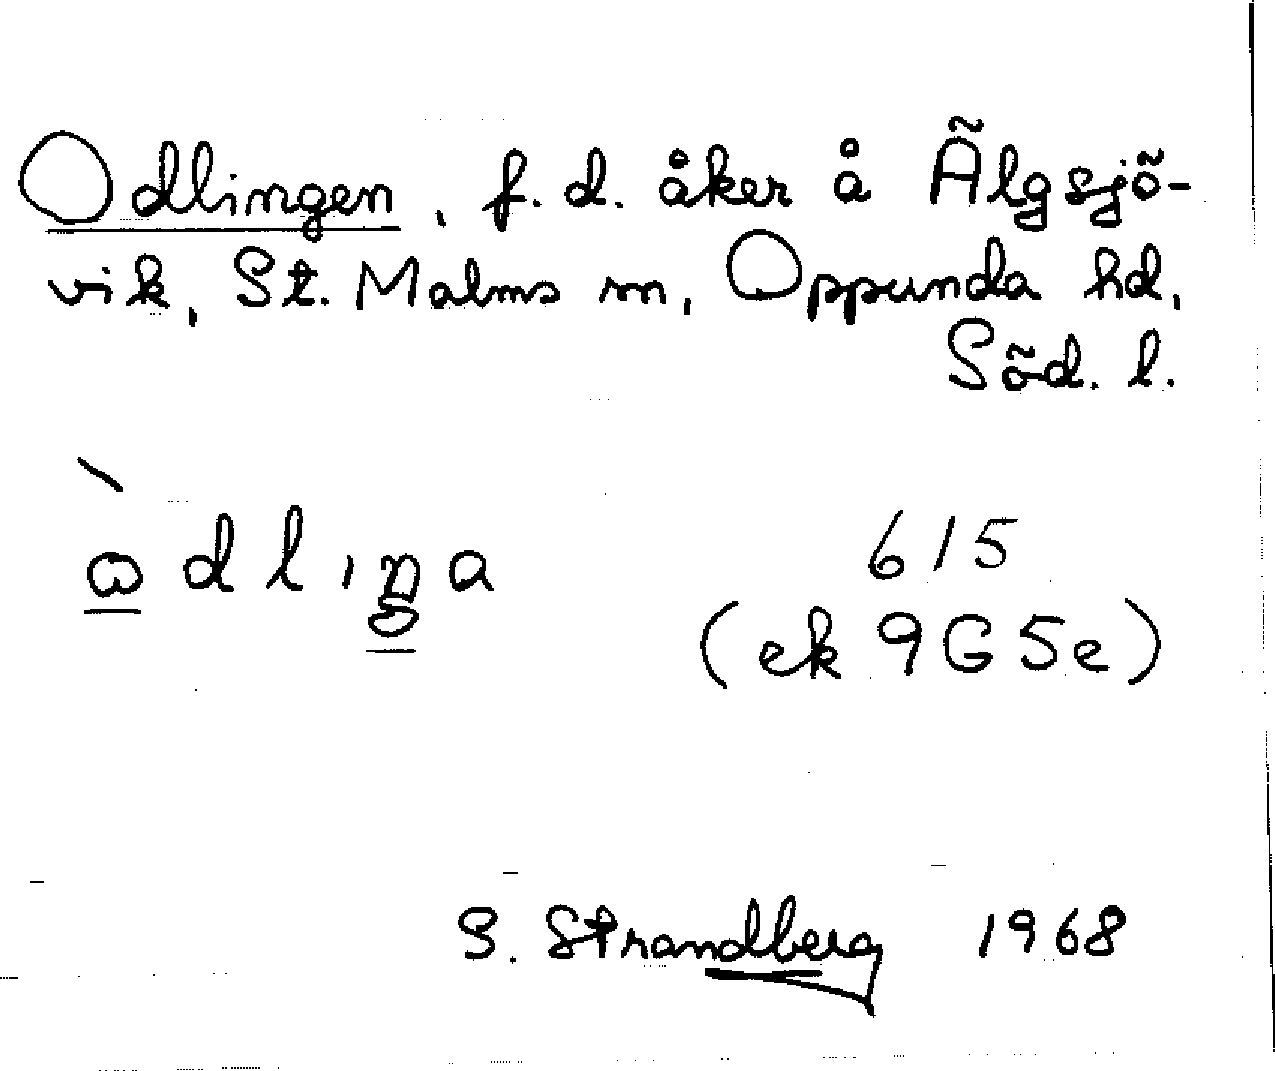 Odlingen, f.d. åker å Älgsjö-
vik, St. Malms sn, Oppunda hd,
Söd. l.
615
(ek 9G5e)
S. Strandberg 1968